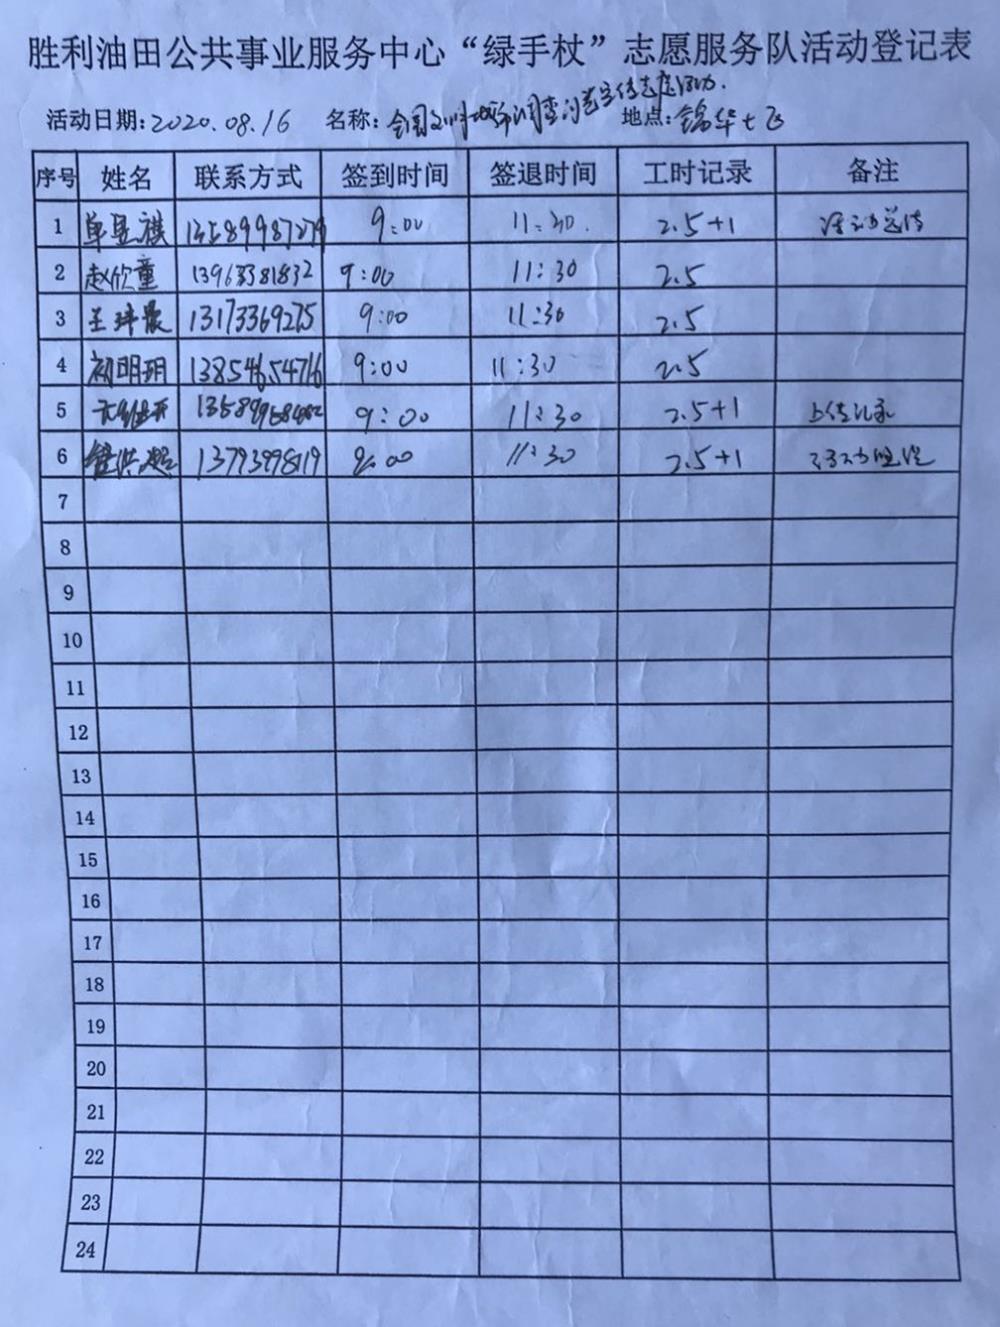 胜利油田公共事业服务中心“绿手杖”志愿服务队活动登记表
活动日期:2020.08.16 名称: 地点:锦华七区
序号 姓名 联系方式 签到时间 签退时间 工时记录 备注
1 单昱祺 13589987279 9:00 11:30. 2.5+1 活动总结
2 赵欣童 13963381832 9:00 11:30 2.5
3 王 13173369275 9:00 11:30 2.5
4 初明玥 13854654716 9:00 11:30 2.5
5 9:00 11:30 2.5+1 上传记录
6 13793978119 9:00 11:30 2.5+1
7
8
9
10
11
12
13
14
15
16
17
18
19
20
21
22
23
24